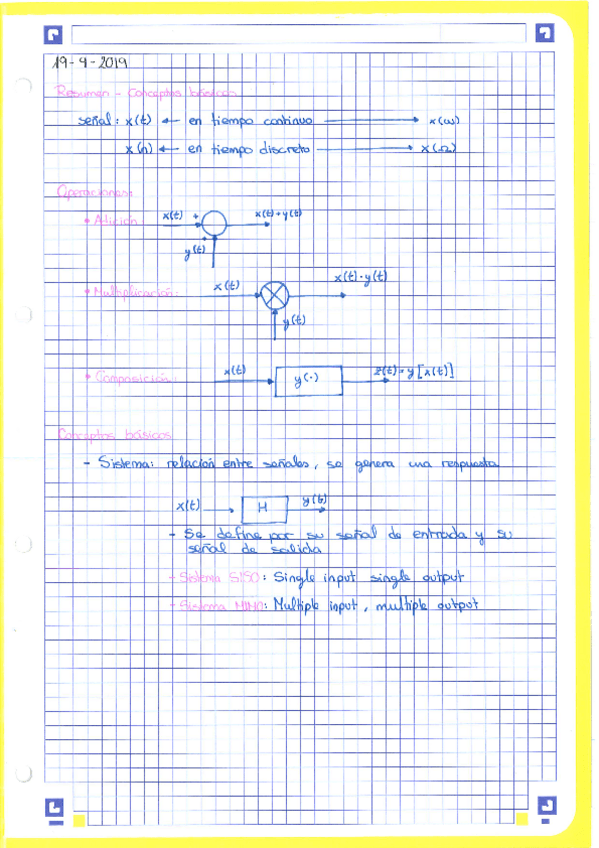 19-9-2019
Resumen - Conceptos básicos
señal: x(t) ← en tiempo continuo → x(ω)
x(n) ← en tiempo discreto → x(Ω)
Operaciones:
• Adición: x(t) + x(t)+y(t)
y(t) +
• Multiplicación: x(t) x(t)·y(t)
y(t)
• Composición: x(t) y(·) z(t)=y[x(t)]
Conceptos básicos
- Sistema: relación entre señales, se genera una respuesta
x(t) → H y(t) →
- Se define por su señal de entrada y su
señal de salida
- Sistema SISO: Single input single output
- Sistema MIMO: Multiple input, multiple output